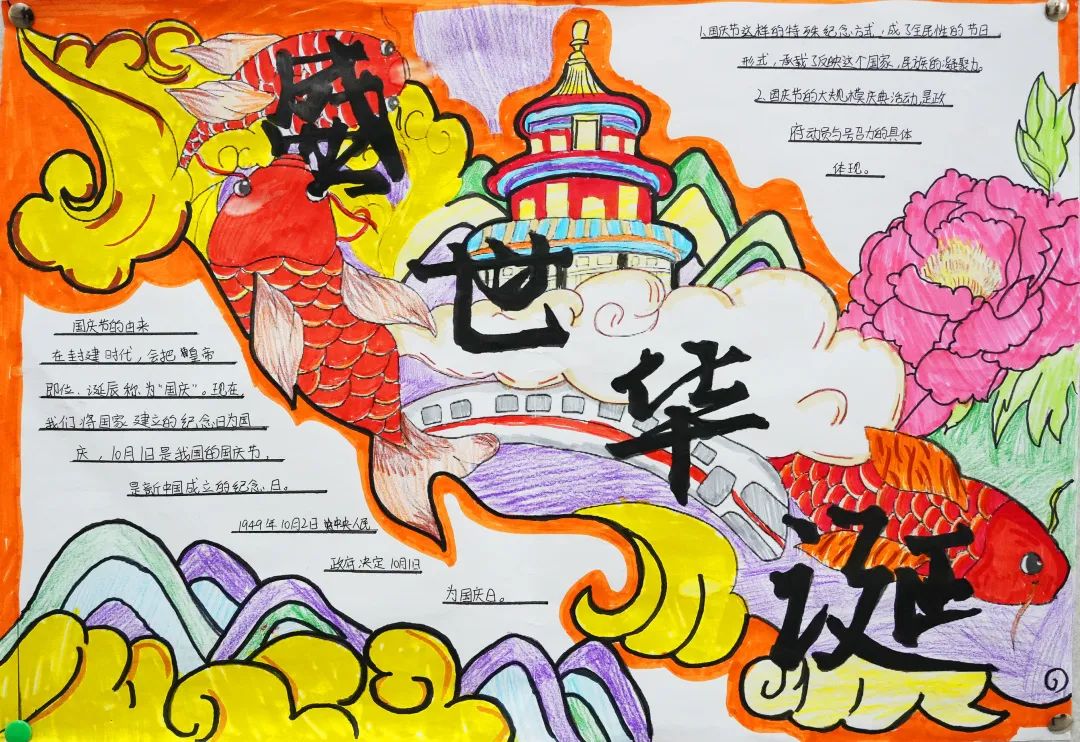 盛世华诞
1.国庆节这样的特殊纪念方式,成了全民性的节日
形式,承载了反映这个国家,民族的凝聚力。
2.国庆节的大规模庆典活动,是政
府动员与号召力的具体
体现。
国庆节的由来
在封建时代,会把皇帝
即位、诞辰称为“国庆”。现在
我们将国家建立的纪念日为国
庆,10月1日是我国的国庆节,
是新中国成立的纪念日。
1949年10月2日中央人民
政府决定10月1日
为国庆日。